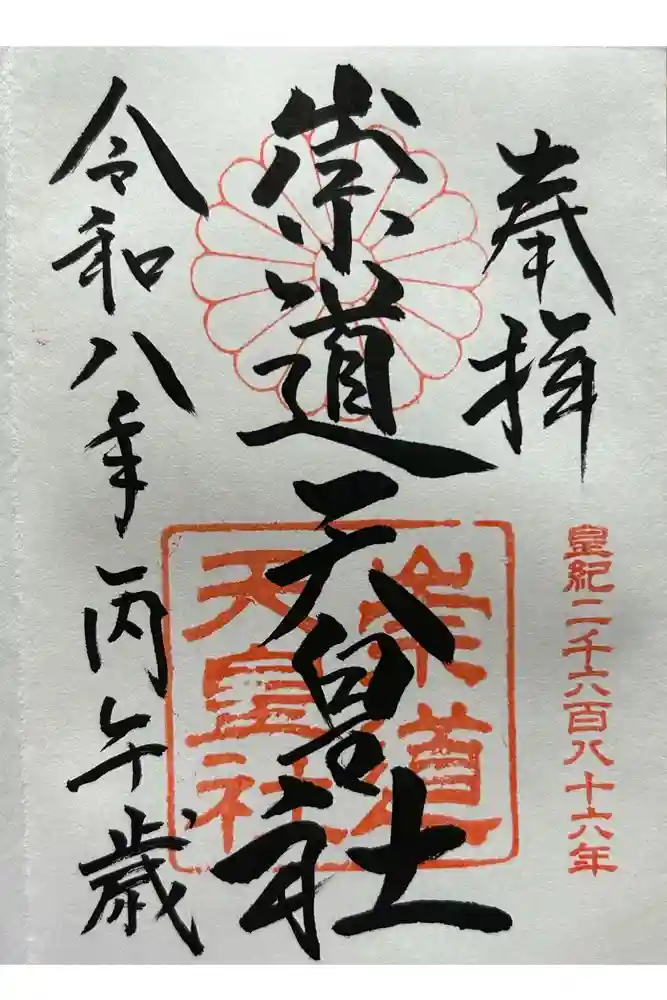 奉拝
皇紀二千六百八十六年
崇道天皇社
崇道
天皇社
令和八年丙午歳